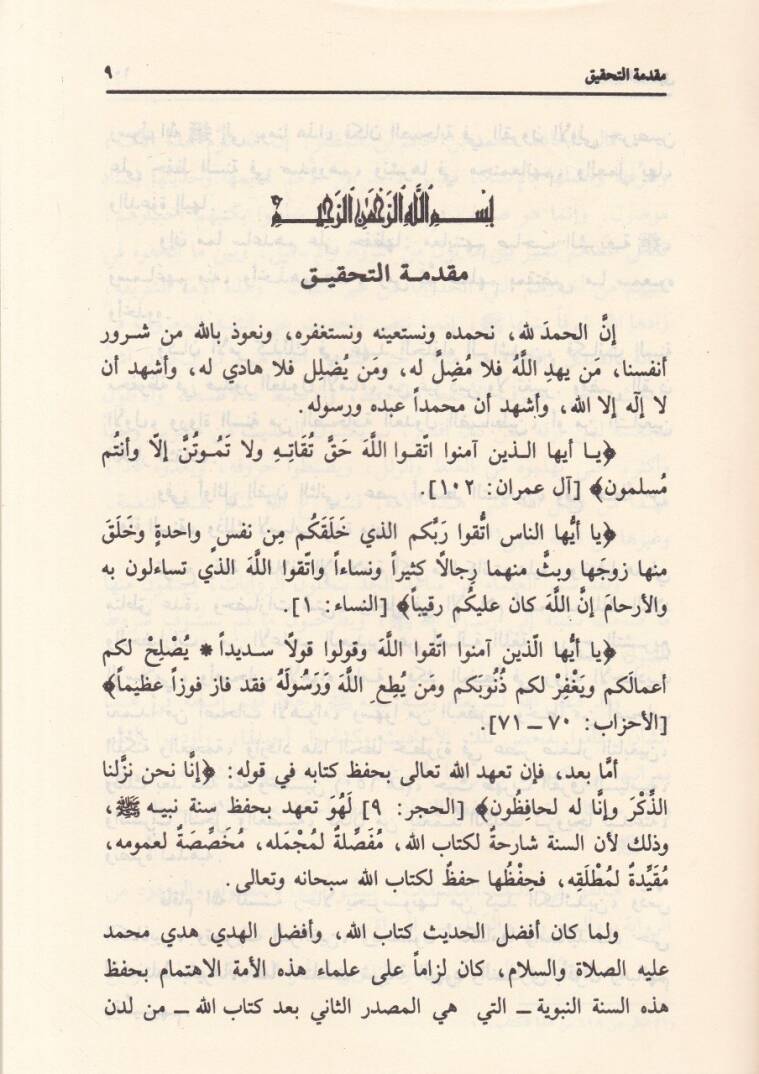 مقدمة التحقيق ٩
بسم الله الرحمن الرحيم
مقدمة التحقيق
إنَّ الحمدَ لله، نحمده ونستعينه ونستغفره، ونعوذ بالله من شرور
أنفسنا، مَن يهدِ اللَّهُ فلا مُضِلَّ له، ومَن يُضلِل فلا هادي له، وأشهد أن
لا إلٰه إلا الله، وأشهد أن محمداً عبده ورسوله.
﴿يا أيها الذين آمنوا اتّقوا اللَّهَ حَقَّ تُقَاتِهِ ولا تَمُوتُنَّ إلّا وأنتُم
مُسلمون﴾ [آل عمران: ١٠٢].
﴿يا أيُّها الناس اتُّقوا رَبَّكم الذي خَلَقَكُم مِن نفسٍ واحدةٍ وخَلَقَ
منها زوجَها وبثَّ منهما رِجالًا كثيراً ونساءاً واتّقوا اللَّهَ الذي تساءلون به
والأرحامَ إنَّ اللَّهَ كان عليكُم رقيباً﴾ [النساء: ١].
﴿يا أيُّها الّذين آمنوا اتّقوا اللَّهَ وقولوا قولًا سديداً * يُصْلِحْ لكم
أعمالَكم ويَغْفِرْ لكم ذُنُوبَكم ومَن يُطِعِ اللَّهَ وَرَسُولَهُ فقد فاز فوزاً عظيماً﴾
[الأحزاب: ٧٠ ــ ٧١].
أمَّا بعد، فإن تعهد الله تعالى بحفظ كتابه في قوله: ﴿إنَّا نحن نزَّلنا
الذِّكْرَ وإنَّا له لحافِظُون﴾ [الحجر: ٩] لَهُوَ تعهد بحفظ سنة نبيه ﷺ،
وذلك لأن السنة شارحةٌ لكتاب الله، مُفَصِّلةٌ لمُجْمَله، مُخَصِّصَةٌ لعمومه،
مُقَيِّدةٌ لمُطْلَقِه، فحِفْظُها حفظٌ لكتاب الله سبحانه وتعالى.
ولما كان أفضل الحديث كتاب الله، وأفضل الهدي هدي محمد
عليه الصلاة والسلام، كان لزاماً على علماء هذه الأمة الاهتمام بحفظ
هذه السنة النبوية ــ التي هي المصدر الثاني بعد كتاب الله ــ من لدن